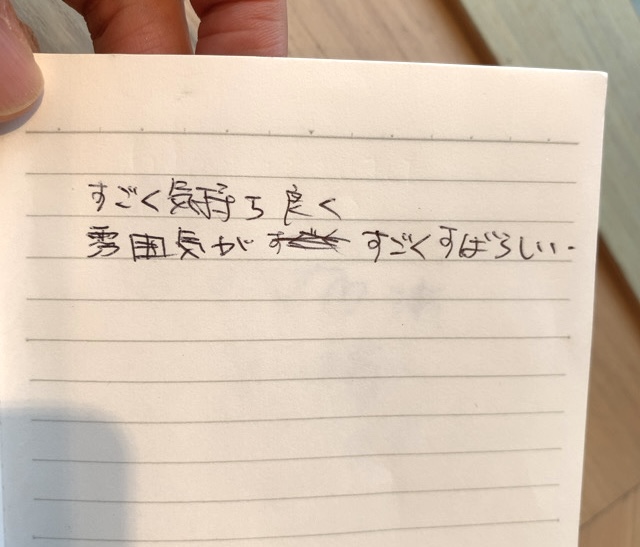 すごく気持ち良く
雰囲気が すごくすばらしい.